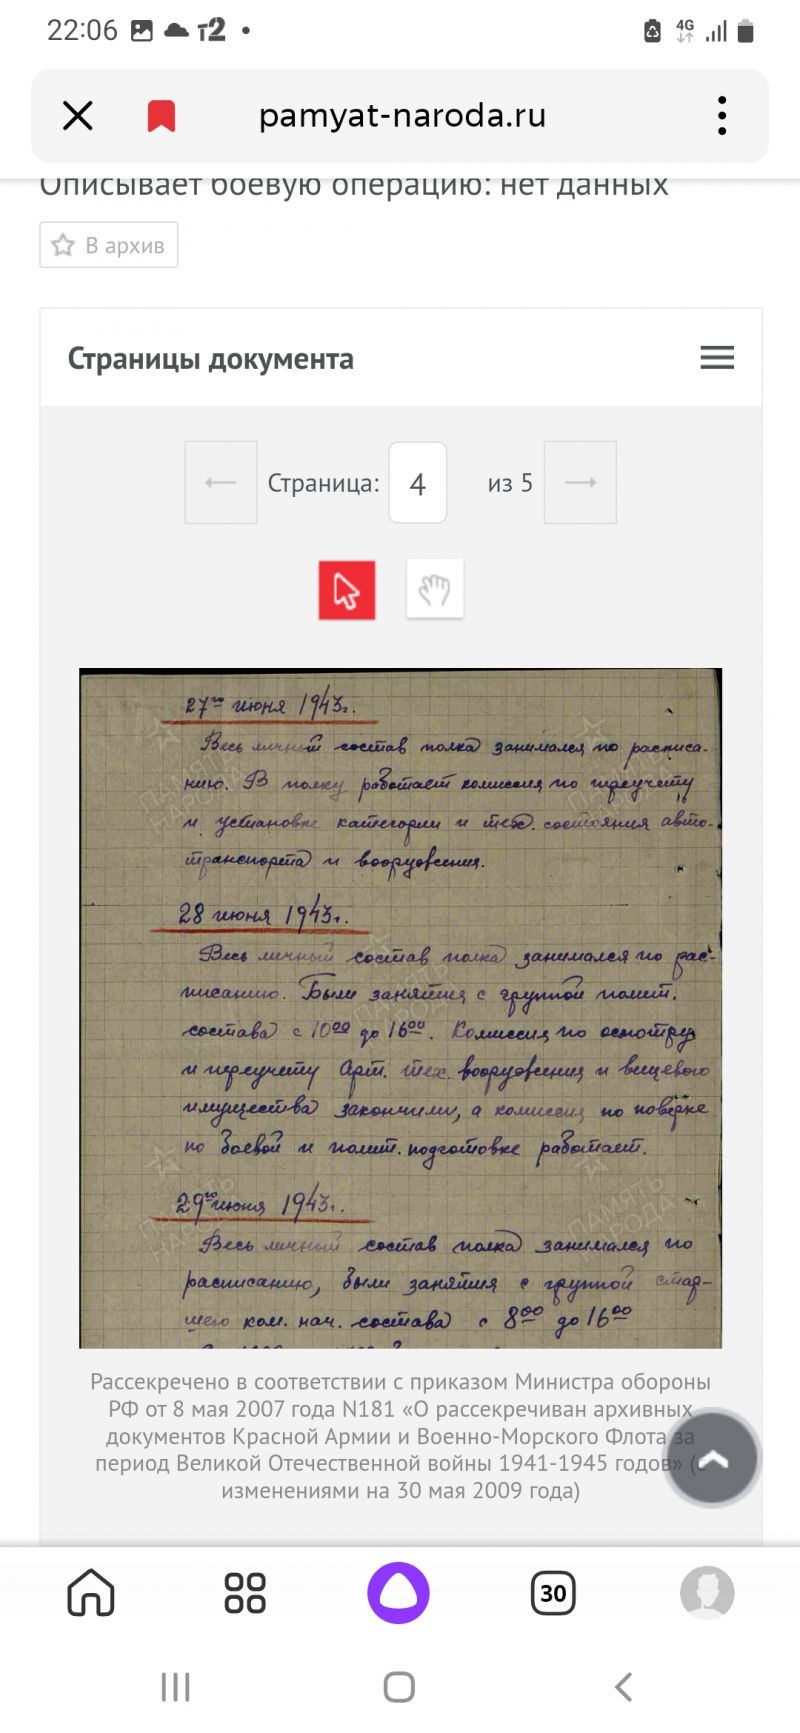 22:06 т2 4G
pamyat-naroda.ru
Описывает боевую операцию: нет данных
В архив
Страницы документа
Страница: 4 из 5
27го июня 1943г.
Весь личный состав полка занимался по расписа-
нию. В полку работает комиссия по переучету
и установке категории и тех. состояния авто-
транспорта и вооружения.
28 июня 1943г.
Весь личный состав полка занимался по рас-
писанию. Были занятия с группой полит.
состава с 10⁰⁰ до 16⁰⁰. Комиссия по осмотру
и переучету Арт. тех. вооружения и вещевого
имущества закончили, а комиссия по поверке
по боевой и полит. подготовке работает.
29го июня 1943г.
Весь личный состав полка занимался по
расписанию, были занятия с группой стар-
шего ком. нач. состава с 8⁰⁰ до 16⁰⁰
Рассекречено в соответствии с приказом Министра обороны
РФ от 8 мая 2007 года N181 «О рассекречиван архивных
документов Красной Армии и Военно-Морского Флота за
период Великой Отечественной войны 1941-1945 годов» (с
изменениями на 30 мая 2009 года)
30